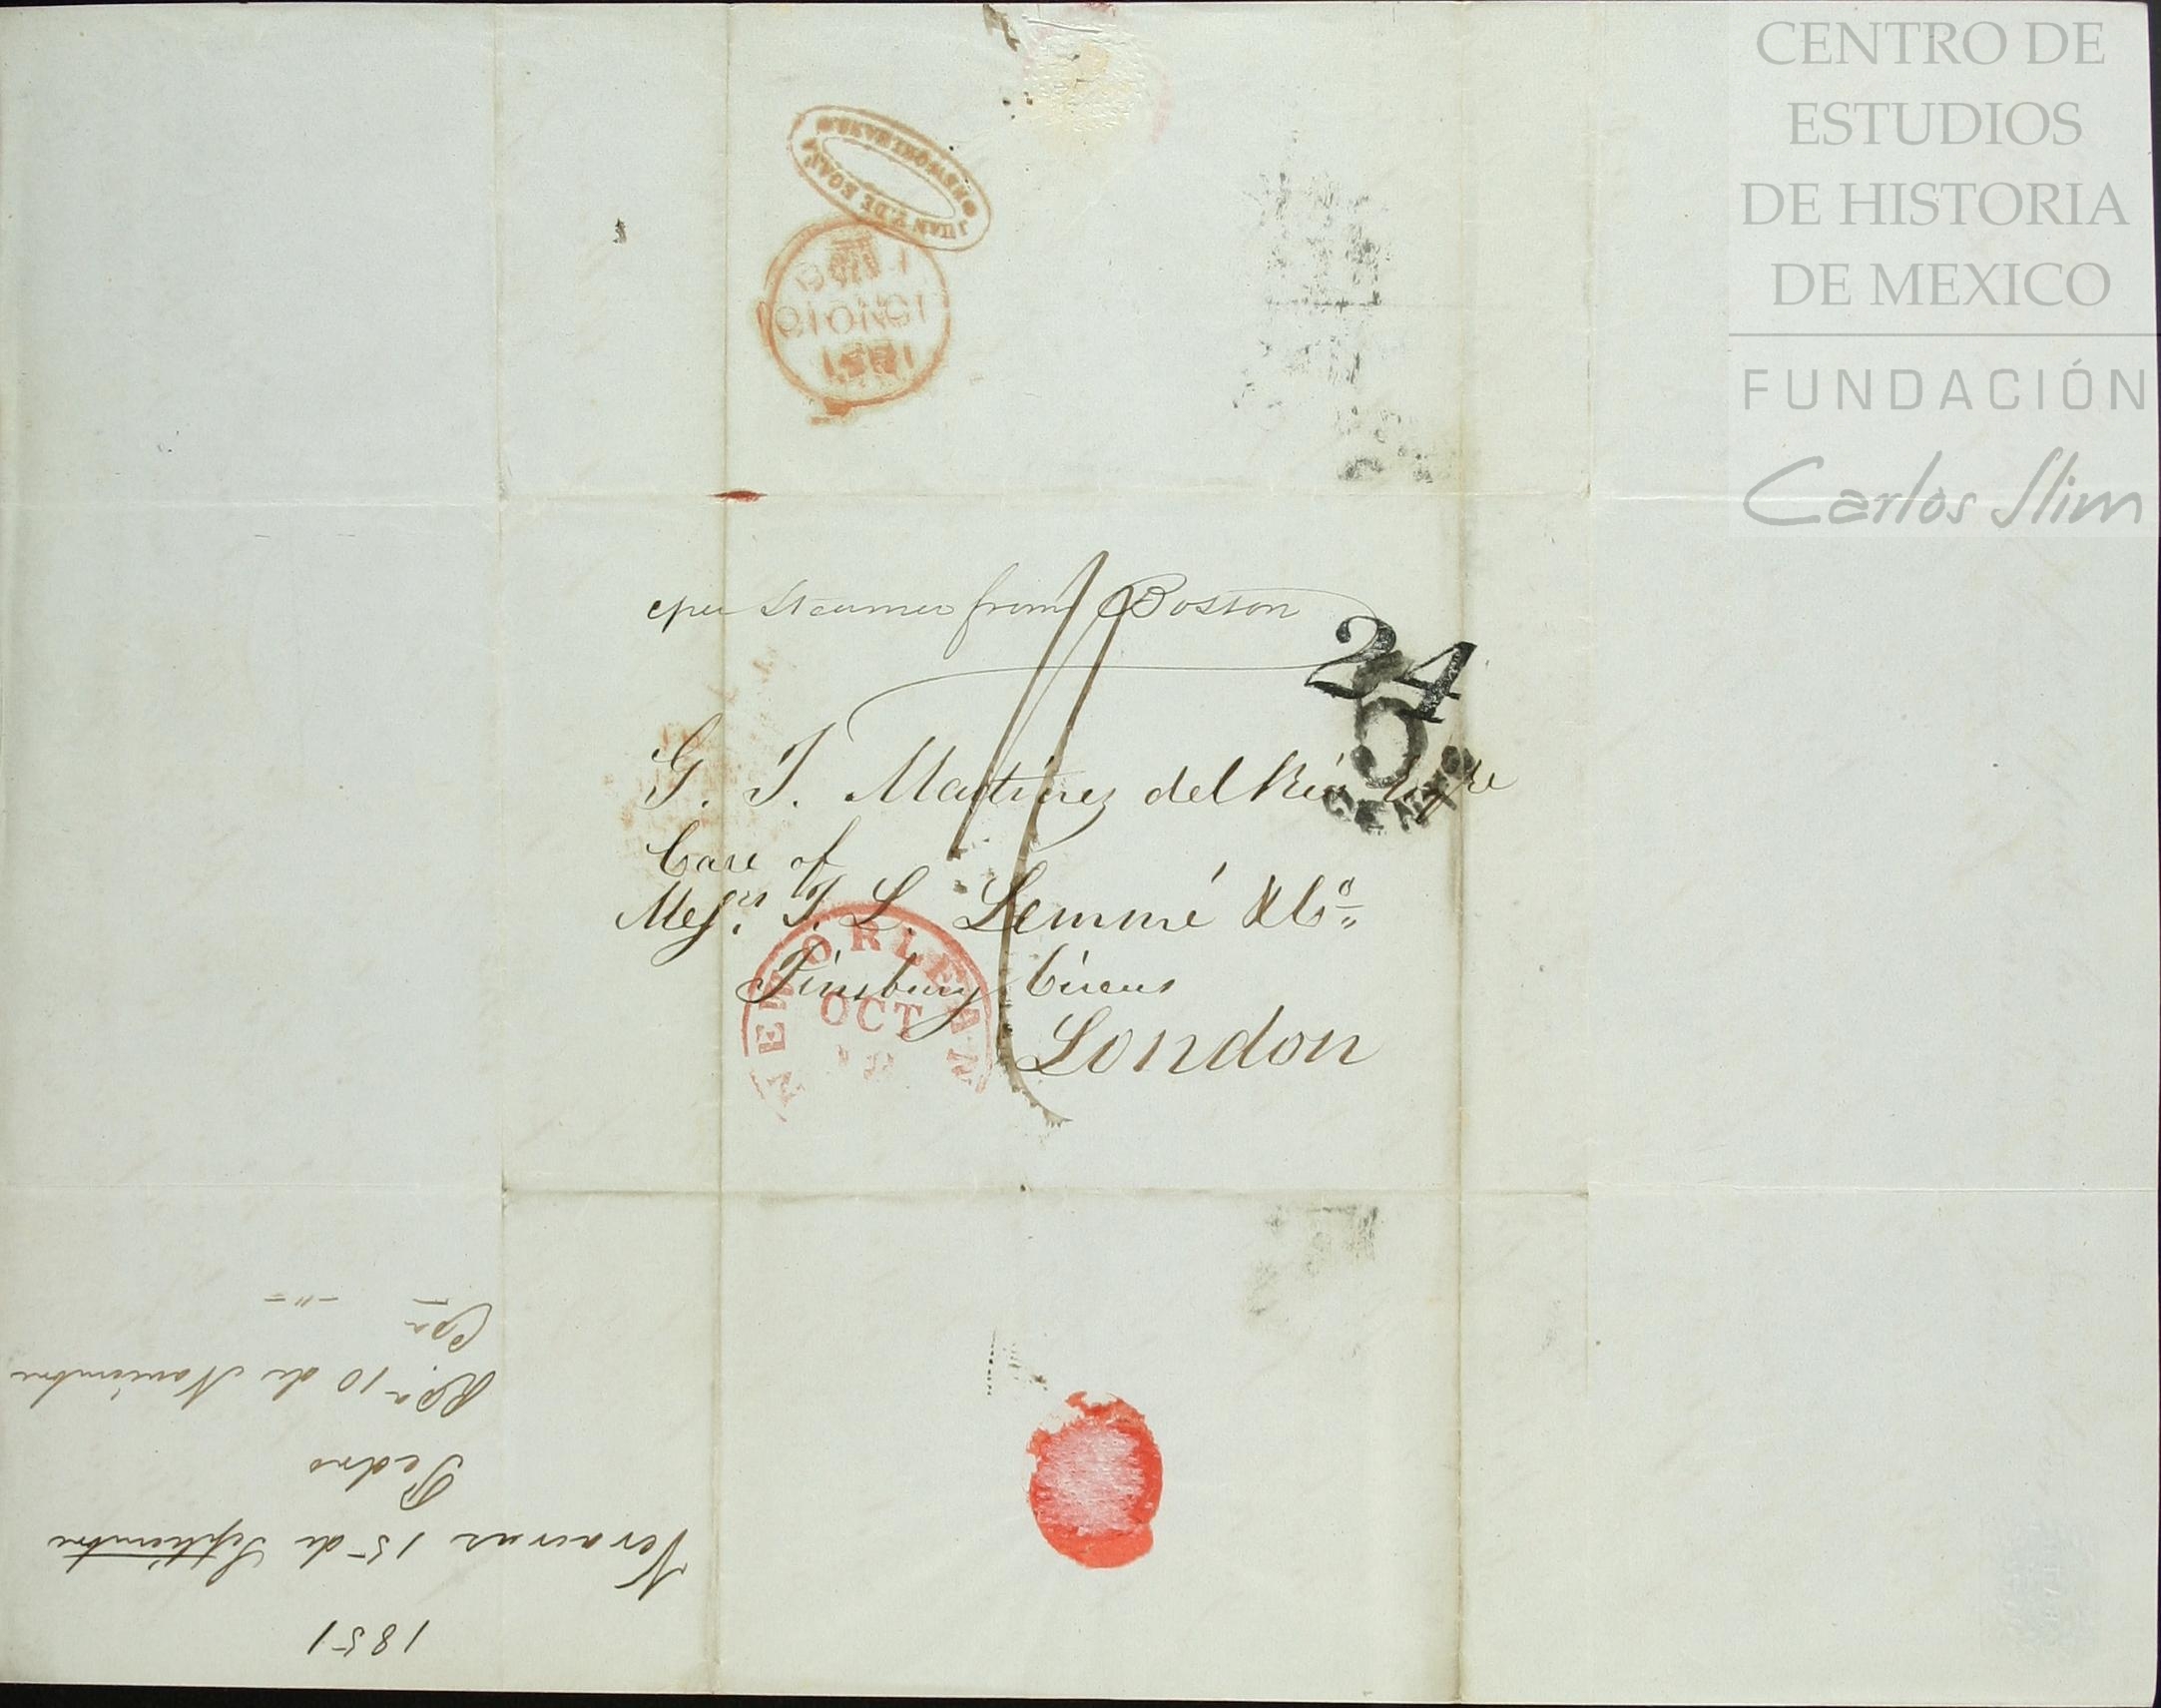 CENTRO DE
ESTUDIOS
DE HISTORIA
DE MEXICO
FUNDACIÓN
Carlos Slim
JUAN Y. DE EGAÑA
NEW ORLEANS
10 NO 10
1851
per Steamer from Boston
24
5
CENTS
G. J. Martinez del Rio
Care of
Messrs J. L. Lemmé & Co
Finsbury Circus
London
NEW ORLEANS
OCT
1851
Veracruz 15 de Septiembre
Pedro
Rda 10 de Noviembre